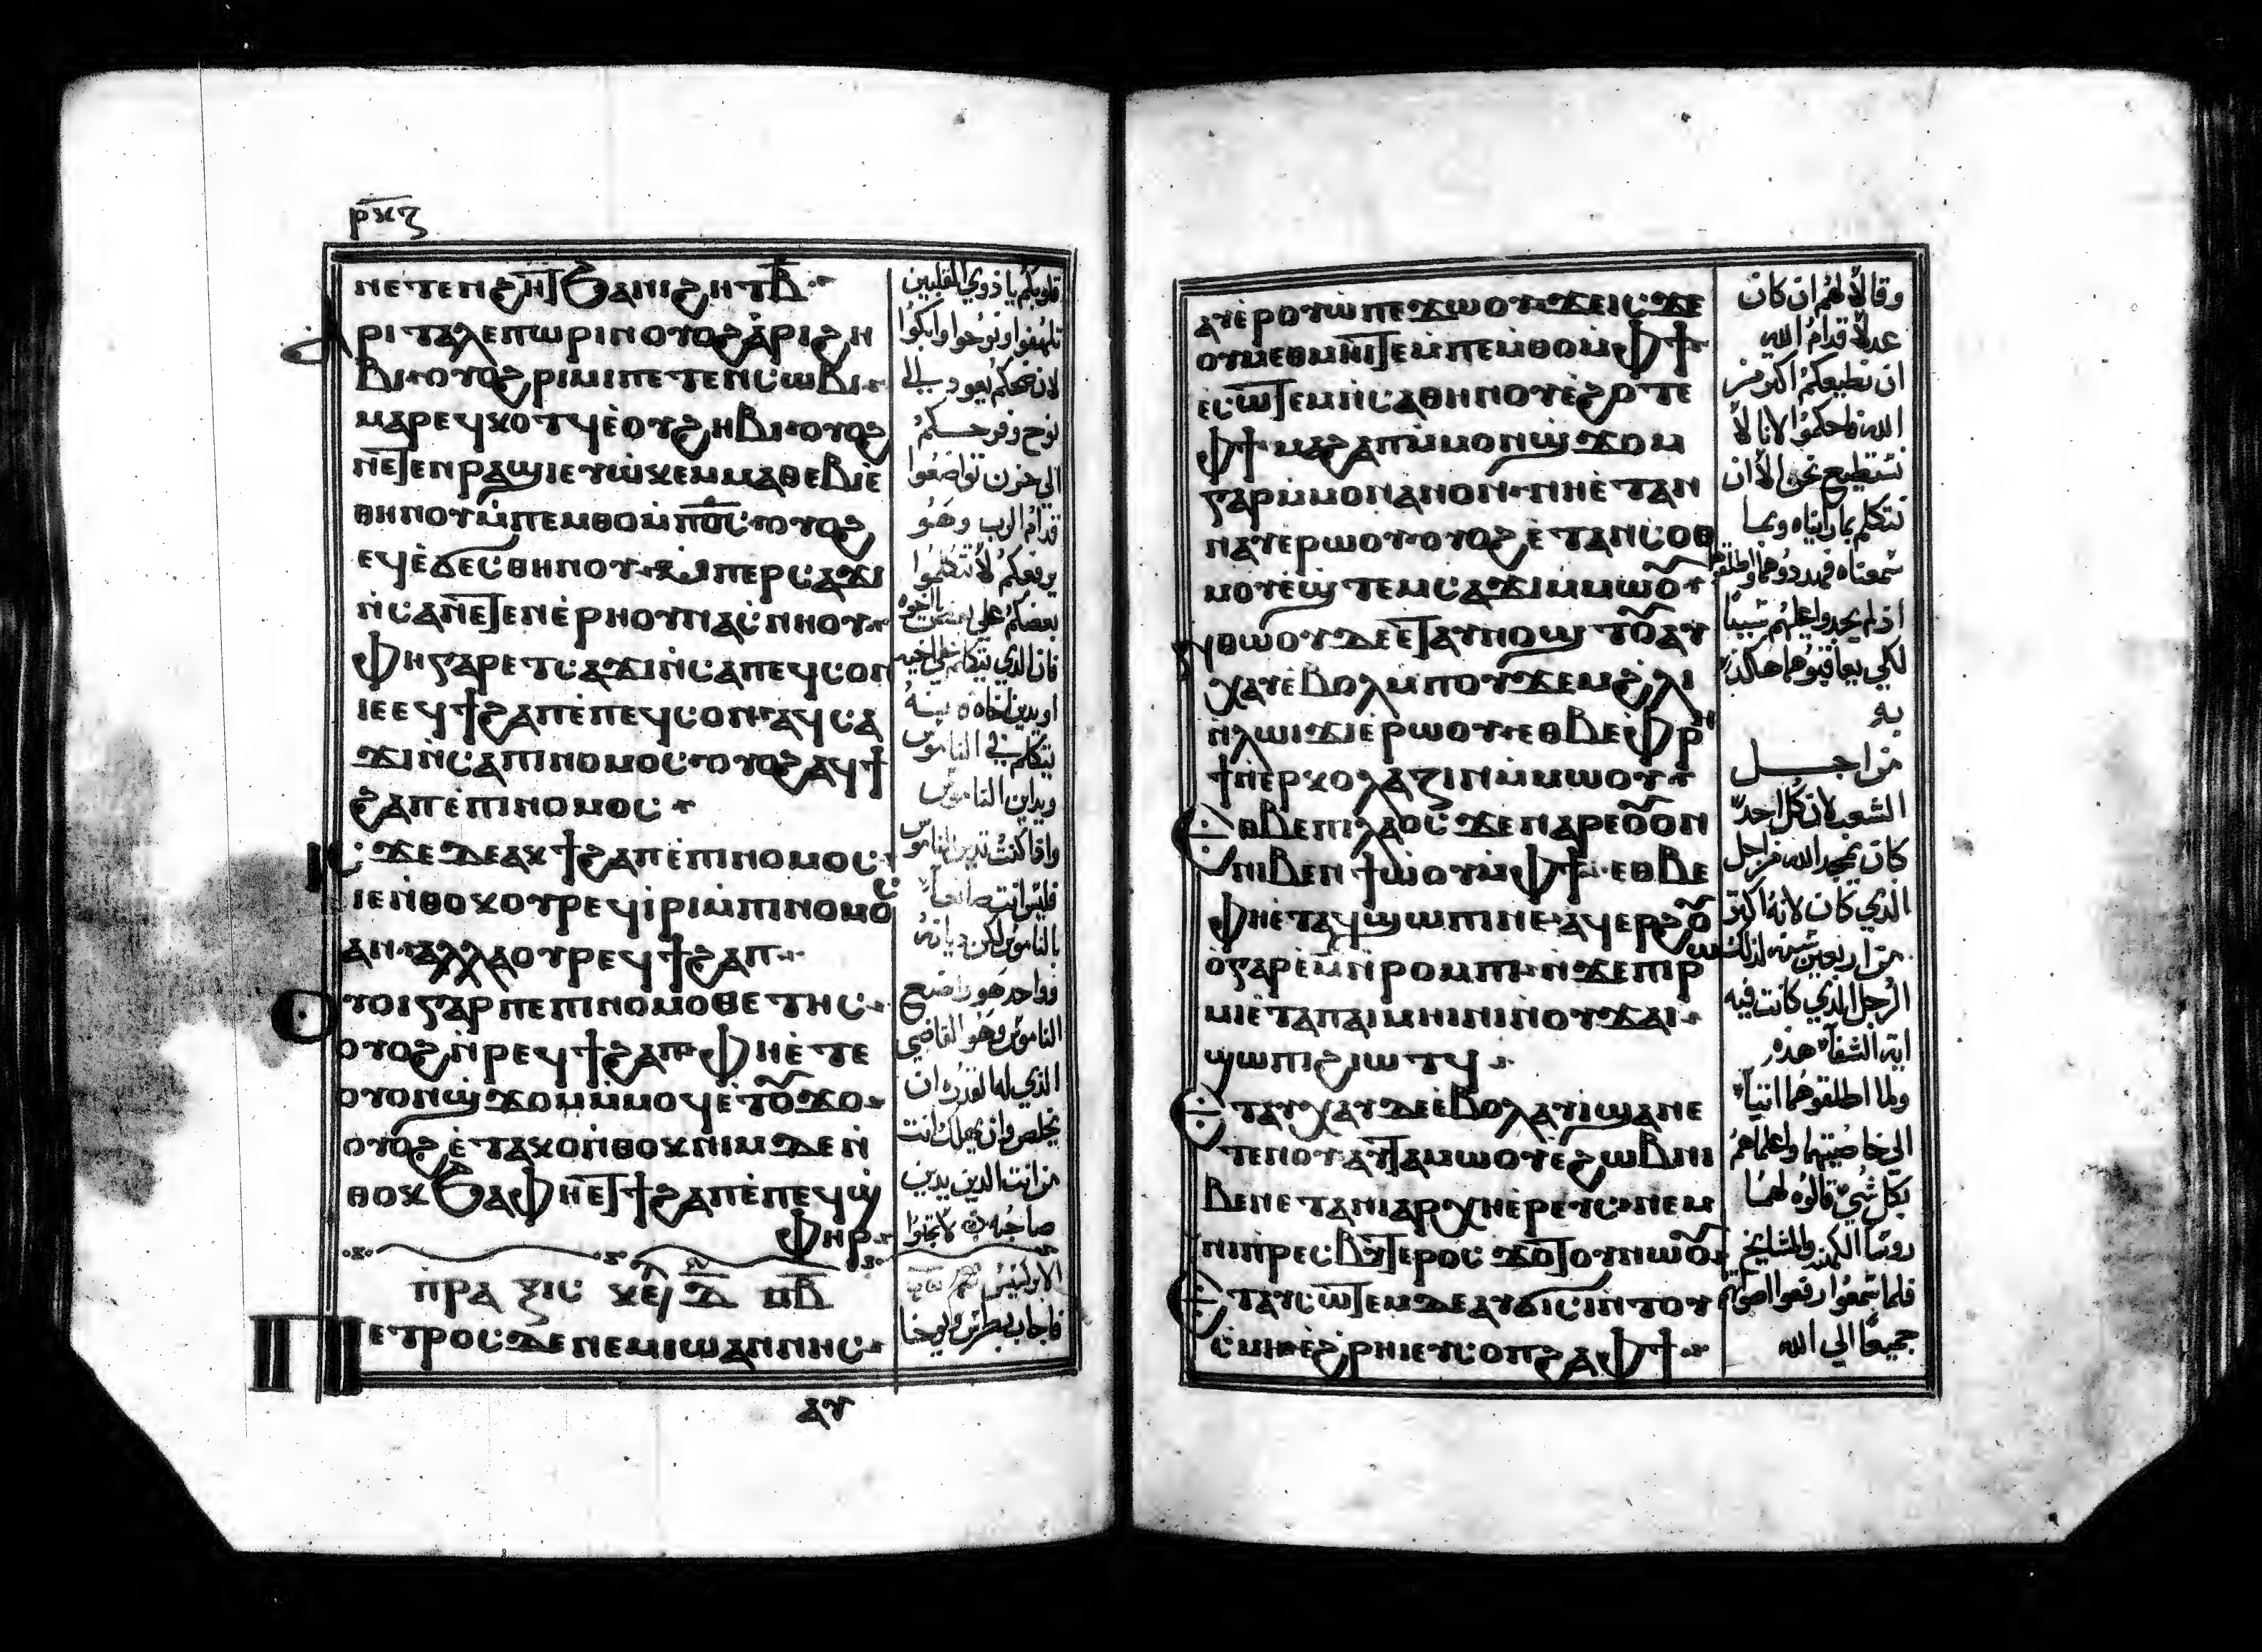 ⲣⲕⲍ
ⲛⲉⲧⲉⲛϩⲏⲧ ϧⲁⲛⲓϩⲏⲧ ⲃ̅
ⲁⲣⲓⲧⲁⲗⲉⲡⲱⲣⲓⲛ ⲟⲩⲟϩ ⲁ̀ⲣⲓϩⲏ
ⲃⲓ ⲟⲩⲟϩ ⲣⲓⲙⲓ ⲡⲉⲧⲉⲛⲥⲱⲃⲓ
ⲙⲁⲣⲉϥⲕⲟⲧϥ ⲉ̀ⲟⲩϩⲏⲃⲓ ⲟⲩⲟϩ
ⲡⲉⲧⲉⲛⲣⲁϣⲓ ⲉⲩⲱ̀ⲕⲉⲙ ⲙⲁⲑⲉⲃⲓⲉ̀
ⲑⲏⲛⲟⲩ ⲙ̀ⲡⲉⲙⲑⲟ ⲙ̀ⲡⲟ̅ⲥ̅ ⲟⲩⲟϩ
ⲉϥⲉ̀ϭⲉⲥ ⲑⲏⲛⲟⲩ ⲙ̀ⲡⲉⲣⲥⲁϫⲓ
ⲛ̀ⲥⲁ ⲛⲉⲧⲉⲛⲉ̀ⲣⲏⲟⲩ ⲛⲁⲥ̀ⲛⲏⲟⲩ
ⲫⲏ ⲅⲁⲣ ⲉⲧⲥⲁϫⲓ ⲛ̀ⲥⲁ ⲡⲉϥⲥⲟⲛ
ⲓⲉ ⲉϥϯϩⲁⲡ ⲉ̀ⲡⲉϥⲥⲟⲛ ⲁϥⲥⲁ
ϫⲓ ⲛ̀ⲥⲁ ⲡⲓⲛⲟⲙⲟⲥ ⲟⲩⲟϩ ⲁϥϯ
ϩⲁⲡ ⲉ̀ⲡⲓⲛⲟⲙⲟⲥ
ⲓⲥϫⲉ ⲇⲉ ⲁⲕϯϩⲁⲡ ⲉ̀ⲡⲓⲛⲟⲙⲟⲥ
ⲓⲉ ⲛ̀ⲑⲟⲕ ⲟⲩⲣⲉϥⲓ̀ⲣⲓ ⲙ̀ⲡⲓⲛⲟⲙⲟⲥ
ⲁⲛ ⲁⲗⲗⲁ ⲟⲩⲣⲉϥϯϩⲁⲡ
ⲟⲩⲟⲓ ⲅⲁⲣ ⲡⲉ ⲡⲓⲛⲟⲙⲟⲑⲉⲧⲏⲥ
ⲟⲩⲟϩ ⲛ̀ⲣⲉϥϯϩⲁⲡ ⲫⲏⲉ̀ⲧⲉ
ⲟⲩⲟⲛϣϫⲟⲙ ⲙ̀ⲙⲟϥ ⲉ̀ⲧⲟⲩϫⲟ
ⲟⲩⲟϩ ⲉ̀ⲧⲁⲕⲟ ⲛ̀ⲑⲟⲕ ⲛⲓⲙ ⲇⲉ ⲛ̀
ⲑⲟⲕ ϧⲁ ⲫⲏⲉⲧϯϩⲁⲡ ⲉ̀ⲡⲉϥϣ̀
ⲫⲏⲣ
ⲡⲣⲁⲝⲓⲥ ⲕⲉⲫ ⲇ̅ ⲡ̅ⲃ̅
ⲡⲉⲧⲣⲟⲥ ⲇⲉ ⲛⲉⲙ ⲓⲱⲁⲛⲛⲏⲥ
ⲁⲩ
قلوبكم يا ذوي القلبين
تلهفوا ونوحوا وابكوا
لان ضحككم يعود الي
نوح وفرحكم
الي حزن تواضعوا
قدام الرب وهو
يرفعكم لا تتكلموا
بعضكم علي بعض يا اخوه
فان الذي يتكلم علي اخيه
او يدين اخاه
يتكلم في الناموس
ويدين الناموس
واذا كنت تدين الناموس
فليس انت صانعا
بالناموس لكن ديانه
وواحد هو واضع
الناموس وهو القاضي
الذي له القدره ان
يخلص وان يهلك انت
من انت الذي يدين
صاحبه لا تحبوا
الابركسيس
فاجاب بطرس ويوحنا
ⲁⲩⲉ̀ⲣⲟⲩⲱ̀ ⲡⲉϫⲱⲟⲩ ϫⲉ ⲓⲥϫⲉ
ⲟⲩⲙⲉⲑⲙⲏⲓ ⲧⲉ ⲙ̀ⲡⲉⲙⲑⲟ ⲙ̀ⲫϯ
ⲉⲥⲱⲧⲉⲙ ⲛ̀ⲥⲁ ⲑⲏⲛⲟⲩ ⲉ̀ϩⲟⲧⲉ
ⲫϯ ⲙⲁϩⲁⲡ ⲙ̀ⲙⲟⲛ ϣϫⲟⲙ
ⲅⲁⲣ ⲙ̀ⲙⲟⲛ ⲁⲛⲟⲛ ⲛⲏⲉ̀ⲧⲁⲛ
ⲛⲁⲩ ⲉⲣⲱⲟⲩ ⲟⲩⲟϩ ⲉ̀ⲧⲁⲛⲥⲟⲑ
ⲙⲟⲩ ⲉ̀ϣⲧⲉⲙⲥⲁϫⲓ ⲙ̀ⲙⲱⲟⲩ
ⲛ̀ⲑⲱⲟⲩ ⲇⲉ ⲉⲧⲁⲩⲛⲟϣⲧⲟⲩ ⲁⲩ
ⲭⲁⲩ ⲉ̀ⲃⲟⲗ ⲙ̀ⲡⲟⲩϫⲉⲙ ϩ̀ⲗⲓ
ⲛ̀ⲗⲱⲓϫⲓ ⲉ̀ⲣⲱⲟⲩ ⲉⲑⲃⲉ ⲫⲣⲏ
ϯ ⲛ̀ⲉⲣⲕⲟⲗⲁⲍⲓⲛ ⲙ̀ⲙⲱⲟⲩ
ⲉⲑⲃⲉ ⲡⲓⲗⲁⲟⲥ ϫⲉ ⲛⲁⲣⲉ ⲟⲩⲟⲛ
ⲛⲓⲃⲉⲛ ϯⲱ̀ⲟⲩ ⲙ̀ⲫϯ ⲉⲑⲃⲉ
ⲫⲏⲉ̀ⲧⲁϥϣⲱⲡⲓ ⲛⲉ ⲁϥⲉⲣϩⲟⲩ
ⲟ̀ ⲅⲁⲣ ⲉ̀ⲙ̅ ⲛ̀ⲣⲟⲙⲡⲓ ⲛ̀ϫⲉ ⲡⲓⲣⲱ
ⲙⲓ ⲉ̀ⲧⲁ ⲡⲁⲓⲙⲏⲓⲛⲓ ⲛ̀ⲟⲩϫⲁⲓ
ϣⲱⲡⲓ ϩⲓⲱⲧϥ
ⲉⲧⲁⲩⲭⲁⲩ ⲇⲉ ⲉ̀ⲃⲟⲗ ⲁⲩⲓ̀ ϣⲁ ⲛⲉ
ⲧⲉⲛⲟⲩ ⲁⲩⲧⲁⲙⲱⲟⲩ ⲉ̀ϩⲱⲃ ⲛⲓ
ⲃⲉⲛ ⲉⲧⲁ ⲛⲓⲁⲣⲭⲏⲉ̀ⲣⲉⲩⲥ ⲛⲉⲙ
ⲛⲓⲡⲣⲉⲥⲃⲩⲧⲉⲣⲟⲥ ϫⲟⲧⲟⲩ ⲛⲱⲟⲩ
ⲉⲧⲁⲩⲥⲱⲧⲉⲙ ⲇⲉ ⲁⲩϭⲓⲥⲓ ⲛ̀ⲧⲟⲩ
ⲥ̀ⲙⲏ ⲉ̀ϩ̀ⲣⲏⲓ ⲉⲩⲥⲟⲡ ϩⲁ ⲫϯ
وقالا لهم ان كان
عدلا قدام الله
ان نطيعكم اكثر من
الله فاحكموا لاننا لا
نستطيع نحن الا ان
نتكلم بما رايناه وبما
سمعناه فهددوهما واطلقوهما
اذ لم يجدوا عليهم شييا
لكي يعاقبوهما هكذا
به
من اجل
الشعب لان كل احد
كان يمجد الله من اجل
الذي كان لانه اكثر
من اربعين سنه لذلك
الرجل الذي كانت فيه
ايه الشفا هذه
ولما اطلقوهما اتيا
الي خاصيتهما واعلماهم
بكل شي قالوه لهما
روسا الكهنه والمشايخ
فلما سمعوا رفعوا اصواتهم
جميعا الي الله